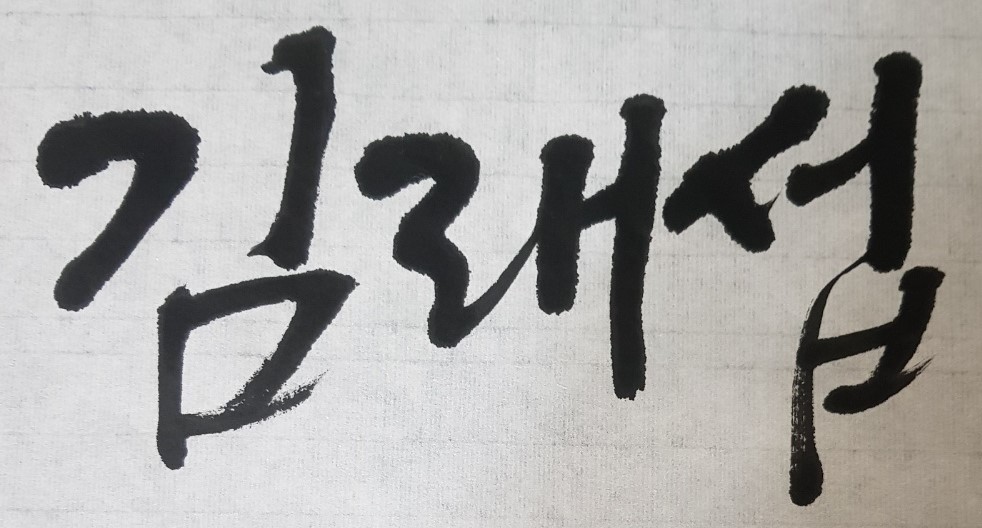 김래섭